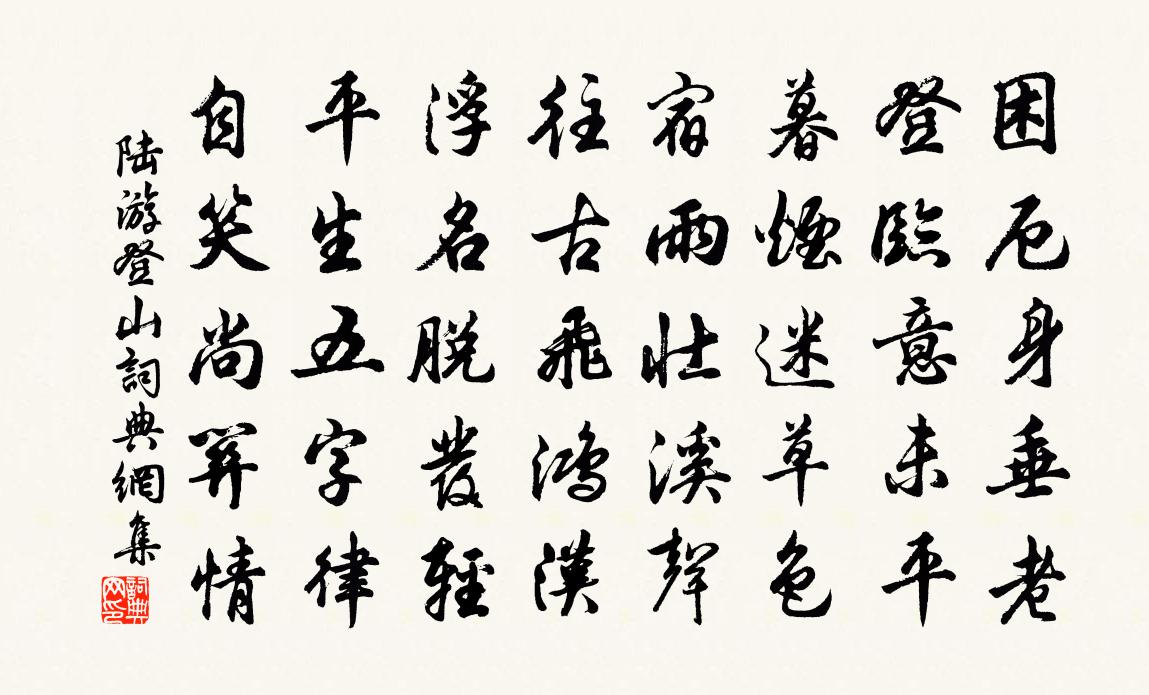 困厄身垂老
登臨意未平
暮煙迷草色
宿雨壯溪聲
往古飛鴻漢
浮名脫發輕
平生五字律
自笑尚關情
陸游登山詞典網集
詞典網印